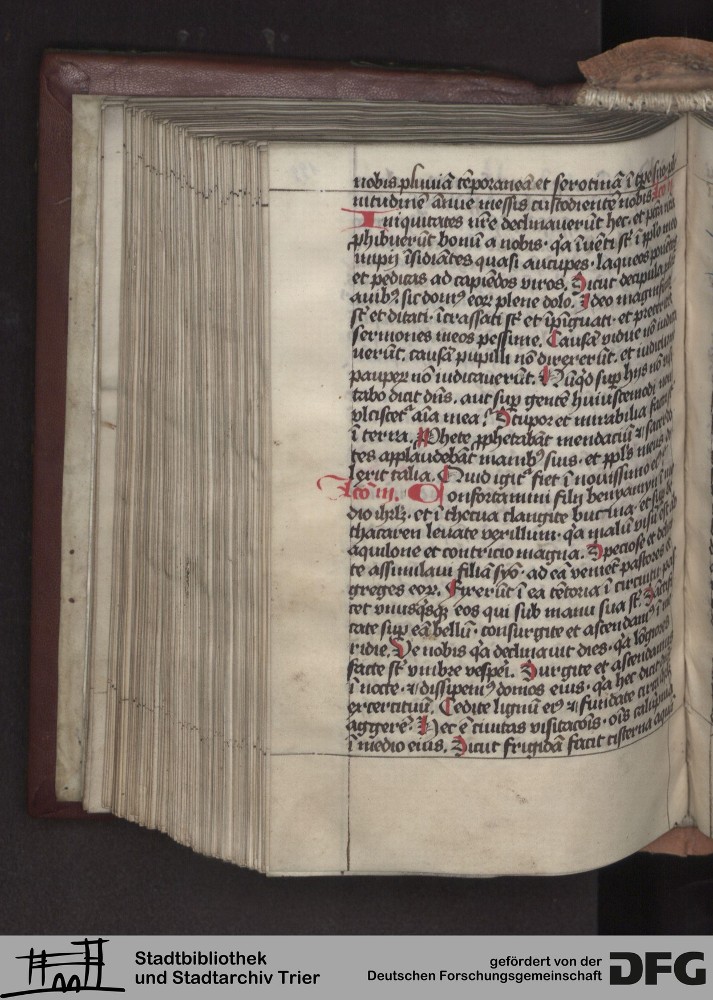 nobis pluviā tēporaneā et serotinā ī tpe suo
nitudinē ānue messis custodientē nobis
Iniquitates vr̄e declinaverūt hec · et pcā
phibuerūt bonū a nobis · q̄a īuēti st̄ ī pplo meo
impij īsidiātes quasi aucupes · laqueos
et pedicas ad capiēdos viros. Sicut decipula
avibꝰ sic domꝰ eoꝝ plene dolo. Ideo magnificati
st̄ et ditati · īcrassati st̄ et īpīguati · et
sermones meos pessime. Causā vidue nō
verūt. causā pupilli nō direxerūt. et iudiciū
pauperꝝ nō iudicaverūt. Nūqd sup hijs nō
tabo dicit dn̄s. aut sup gentē huiuscemodi
vlciscetʳ aīa mea? Stupor et mirabilia
ī terra. Phete pphetabāt mendaciū ⁊
tes applaudebāt manibꝰ suis · et ppl̄s meus
lexit talia. Quid igitʳ fiet ī novissimo
Lco iij. Confortamini filij benyamyn ī
dio ihrl̄z · et ī thecua clangite buccina · et sup
thacaren levate vexillum · q̄a malū visū est
aquilone et contricio magna. Speciose et
te assimilavi filiā syō · ad eā veniēt pastores
greges eoꝝ. Fixerūt ī ea tētoria ī circuitu
cet vnusq̄sqꝫ eos qui sub manu sua st̄.
cate sup eā bellū · consurgite et ascendamꝰ ī
ridie. Ve nobis q̄a declinavit dies · q̄a
facte st̄ vmbre vespēi. Surgite et ascendamus
ī nocte · ⁊ dissipemꝰ domos eius · q̄a hec dicit
exercituū. Cedite lignū eiꝰ ⁊ fundate circa
aggerē. Hec ē civitas visitacōis · oīs
ī medio eius. Sicut frigidā facit cisterna
Stadtbibliothek
und Stadtarchiv Trier
gefördert von der
Deutschen Forschungsgemeinschaft
DFG